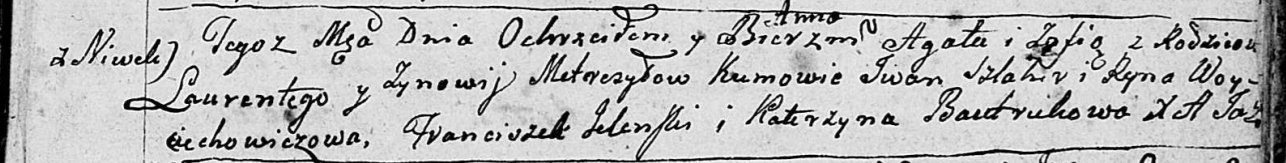 z Niwek) Tegoz Mca Dnia Ochrzciłem y Bierzm Anna Agatę i Zofią z Rodzicow
Laurentego y Zynowij Metrezyłow Kumowie Iwan Szlahir i Ryna Woy-
ciechowiczowa, Franciszek Jelenski i Katerzyna Bautrukowa X A